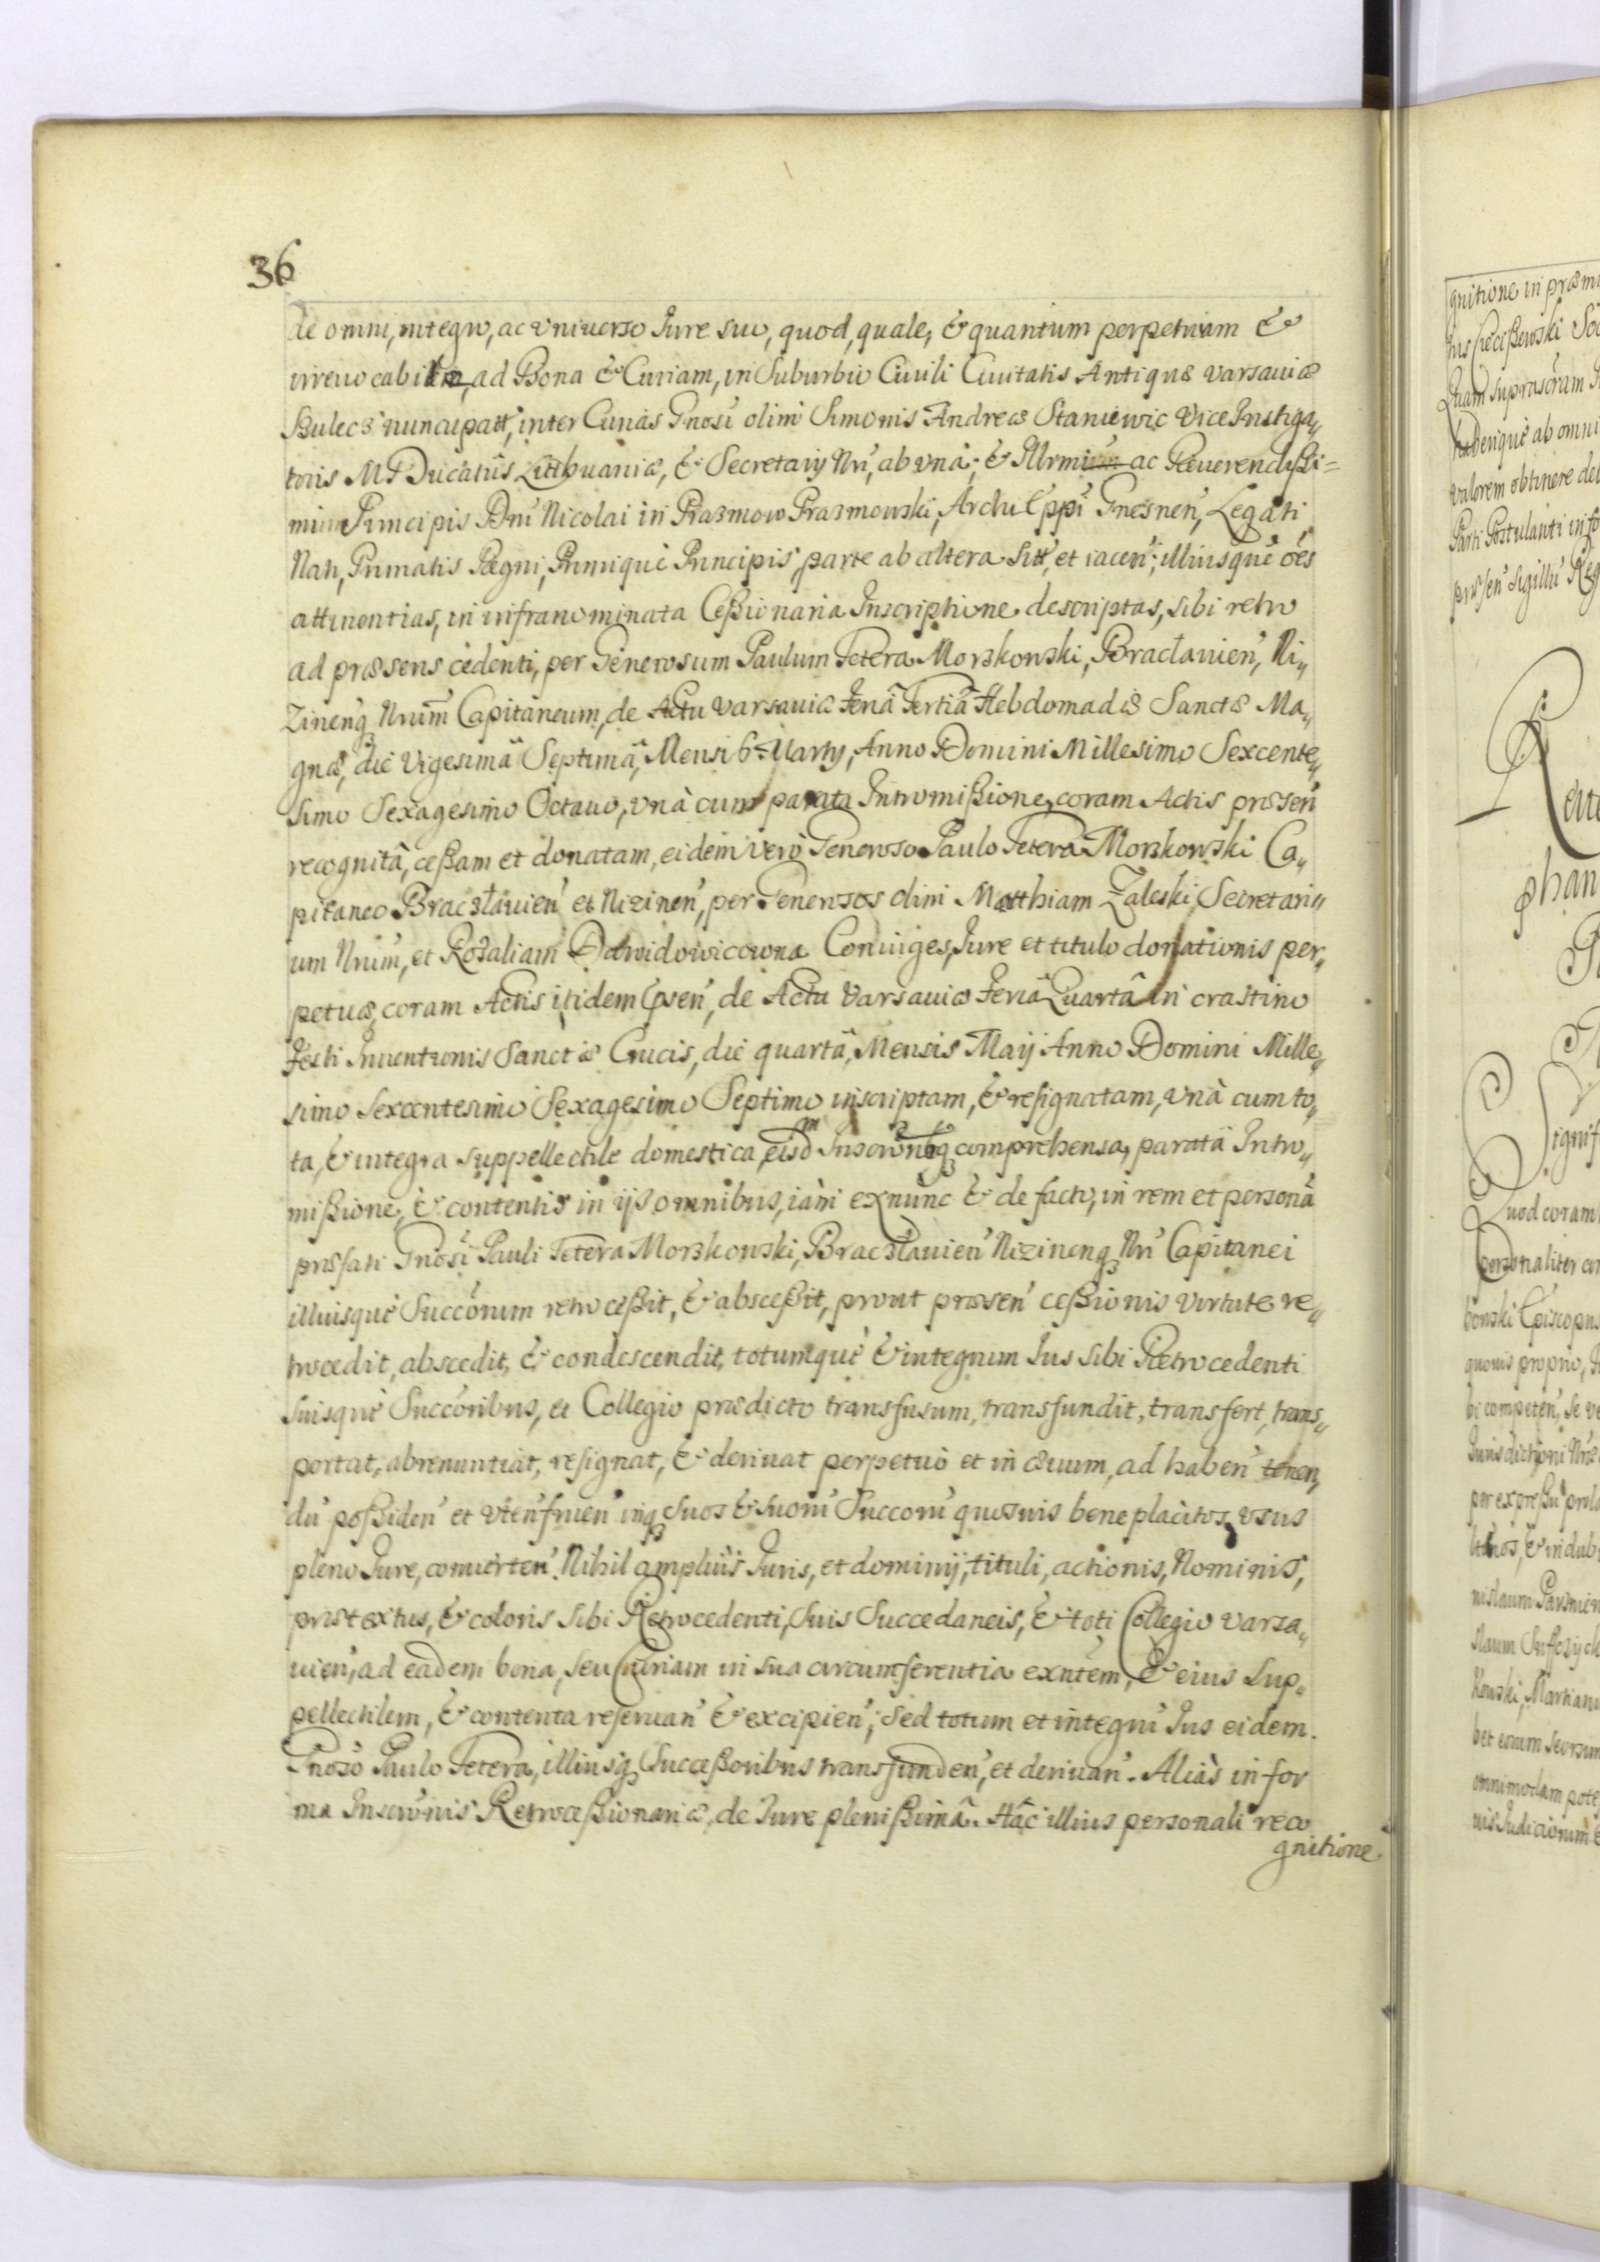 36
de omni, integro, ac vniuerso Iure suo, quod, quale, & quantum perpetuum &
irreuocabile, ad Bona & Curiam, in Suburbio Ciuili Ciuitatis Antiquæ Varsauiæ
Szulecz nuncupatt, inter Curias Gnosi olim Simonis Andreæ Staniewic Vice Instiga„
toris M D Ducatûs Litthuaniæ, & Secretarij Nri, ab vnâ; & Illrmi ac Reuerendißi=
mi Principis Dni Nicolai in Prazmow Prazmowski, Archi Eppi Gnesnen, Legati
Nati, Primatis Regni, Primiquè Principis, parte ab altera sitt, et iacen; illiusquè oes
attinentias, in infranominata Ceßionaria Inscriptione descriptas, sibi retro
ad præsens cedenti, per Generosum Paulum Tetera Morzkowski, Bracłauien, Ni„
Zinenq Nrum Capitaneum, de Actu Varsauiæ Feriâ Tertiâ Hebdomadis Sanctæ Ma„
gnæ, die Vigesimâ Septimâ, Mensis Martij, Anno Domini Millesimo Sexcente„
simo Sexagesimo Octauo, vnà cum parata Intromißione, coram Actis præsen
recognitâ, ceßam et donatam, eidem verò Generoso Paulo Tetera Morzkowski Ca„
pitaneo Braczłauien et Nizinen, per Generosos olim Matthiam Zaleski Secretari„
um Nrum, et Rozaliam Dawidowiczowna Coniuges, Iure et titulo donationis per„
petuæ, coram Actis itidem psen, de Actu Varsauiæ Feriâ Quartâ in crastino
Festi Inuentionis Sanctæ Crucis, die quartâ, Mensis Maij Anno Domini Mille„
simo Sexcentesimo Sexagesimo Septimo inscriptam, & resignatam, vnà cum to„
ta, & integra suppellectile domestica, eisdm Inscronibq comprehensa, paratâ Intro„
mißione, & contentis in ijs omnibus, iàm exnunc & de facto, in rem et personâ
præfati Gnosi Pauli Tetera Morzkowski, Braczłauien Nizinenq Nri Capitanei
illiusquè Succorum retroceßit, & absceßit, prout præsen ceßionis virtute re„
trocedit, abscedit, & condescendit, totumquè & integrum Ius sibi Retrocedenti
suisquè Succoribus, et Collegio prædicto transfusum, transfundit, transfert, trans„
portat, abrenuntiat, resignat, & deriuat perpetuò et in æuum, ad haben tenen„
du poßiden et vten fruen inq suos & suoru Succoru quosuis beneplacitos vsus
pleno Iure, conuerten. Nihil ampliùs Iuris, et dominij, tituli, actionis, Nominis,
prætextus, & coloris sibi Retrocedenti, suis Succedaneis, & toti Collegio Varsa„
uien, ad eadem bona, seu Curiam in sua circumferentia exntem, & eius sup„
pellectilem, & contenta reseruan & excipien; sed totum et integru Ius eidem.
Gnoso Paulo Tetera, illiusq Succeßoribus transfunden, et deriuan. Aliàs in for
ma Inscronis Retroceßionariæ, de Iure plenißimâ. Hâc illius personali reco
gnitione